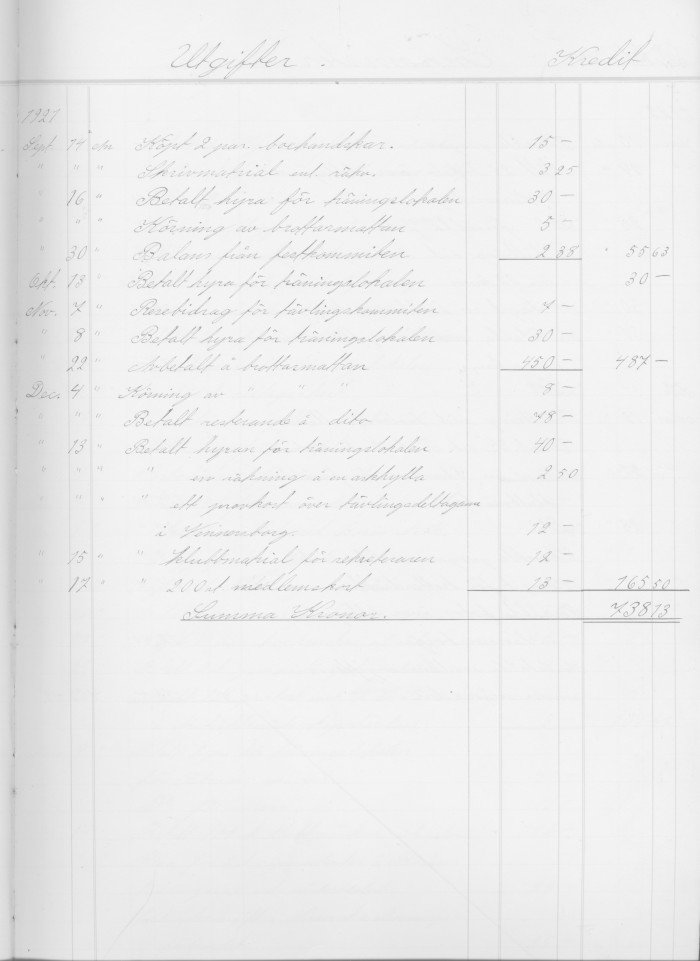 Utgifter. Kredit
1921
Sept. 14 en Köpt 2 par. boxhandskar. 15 —
" " " Skrivmatrial enl. räkn. 3 25
" 16 " Betalt hyra för träningslokalen 30 —
" " " Körning av brottarmattan 5 —
" 30 " Balans från festkommiten 2 38 " 55 63
Okt. 13 " Betalt hyra för träningslokalen 30 —
Nov. 7 " Resebidrag för tävlingskommiten 7 —
" 8 " Betalt hyra för träningslokalen 30 —
" 22 " Avbetalt å brottarmattan 450 — 487 —
Dec. 4 " Körning av " " " 8 —
" " " Betalt resterande å dito 78 —
" 13 " Betalt hyran för träningslokalen 40 —
" " " " en räkning å en hylla 2 50
" " " " ett provkort över tävlingsdeltagarne
i Vinnersborg. 12 —
" 15 " " klubbmatrial för sekreteraren 12 —
" 17 " " 200 st medlemskort 13 — 165 50
Summa Kronor. 738 13